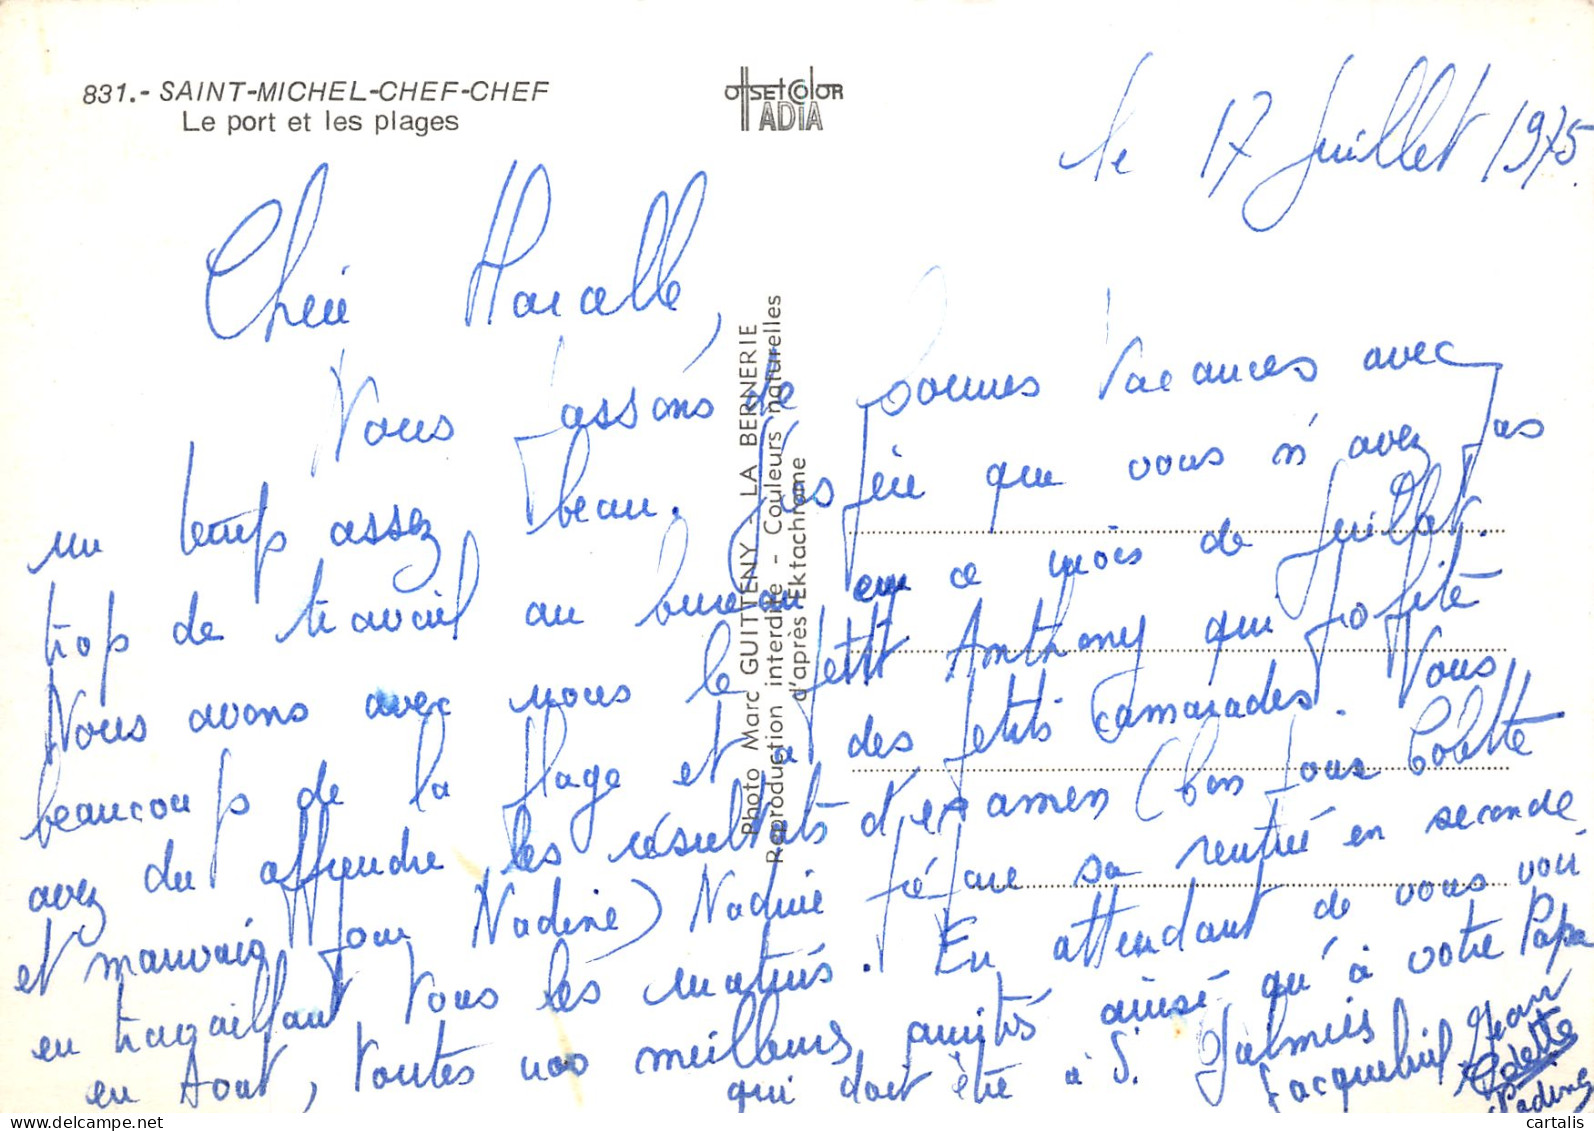 831.- SAINT-MICHEL-CHEF-CHEF
Le port et les plages
OffsetColor
ADIA
le 17 Juillet 1975.
Chère Marcelle,
Nous passons de bonnes vacances avec
un temps assez beau. J'espère que vous n'avez pas
trop de travail au bureau en ce mois de Juillet.
Nous avons avec nous le petit Anthony qui profite
beaucoup de la plage et a des petits camarades. Vous
avez du apprendre les résultats d'examen (bon pour Colette
et mauvais pour Nadine) Nadine prépare sa rentrée en seconde
en travaillant tous les matins. En attendant de vous voir
en Aout, toutes nos meilleures amitiés ainsi qu'à votre Papa
qui doit être à S. Palmiès
Jacqueline Jean
Colette
Nadine
Photo Marc GUITTENY - LA BERNERIE
Reproduction interdite - Couleurs naturelles
d'après Ektachrome
cartalis